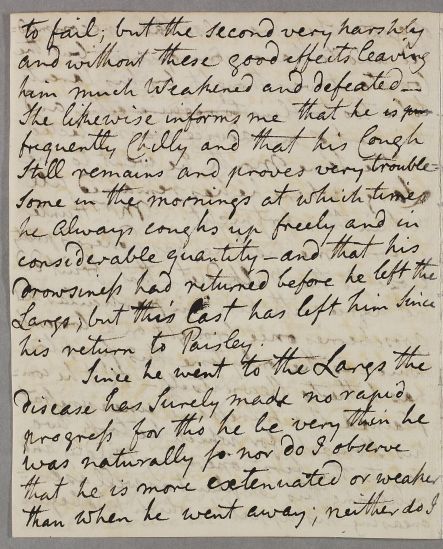 to fail; but the second very harshly
and without these good effects leaving
him much weakened and defeated—
She likewise informs me that he is
frequently Chilly and that his Cough
still remains and proves very trouble-
some in the mornings at which times
he always coughs up freely and in
considerable quantity—and that his
drowsiness had returned before he left the
Largs; but this Last has left him since
his return to Paisley.
Since he went to the Largs the
disease has surely made no rapid
progress for tho' he be very thin he
was naturally so nor do I observe
that he is more extenuated or weaker
than when he went away; neither do I